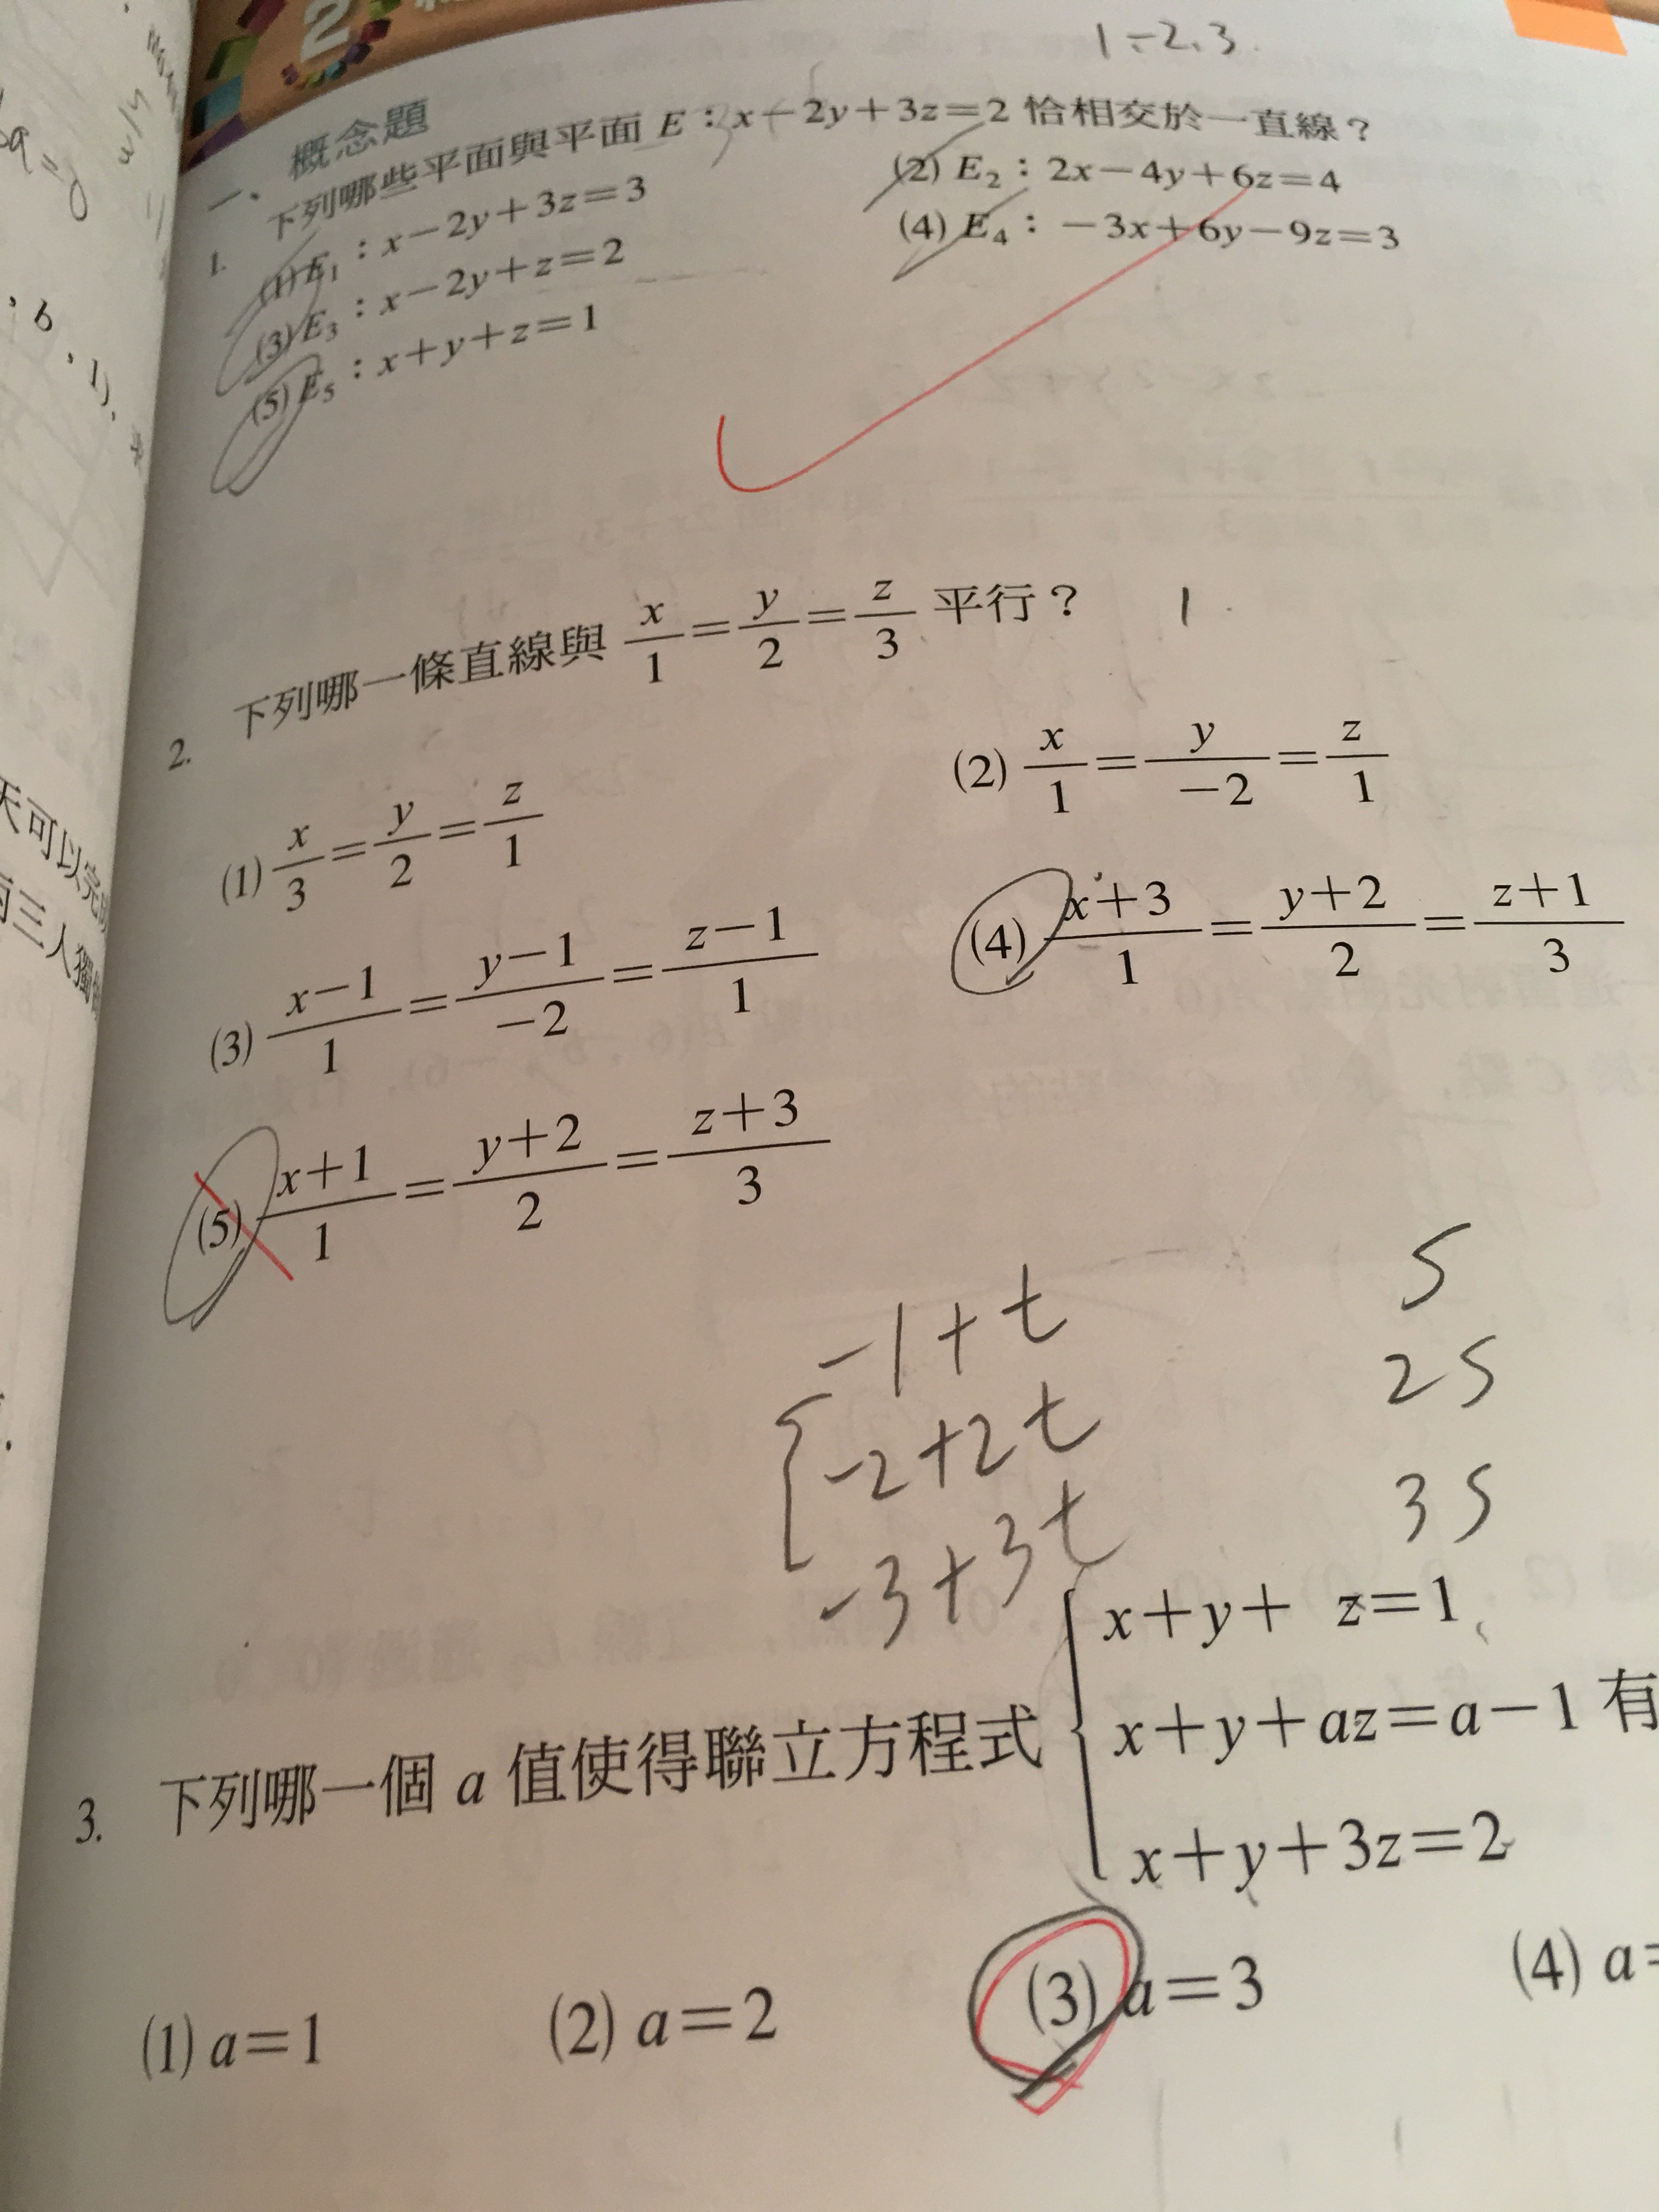 2
1÷2、3
一、概念題
1. 下列哪些平面與平面 E：x－2y＋3z＝2 恰相交於一直線？
(1) E₁：x－2y＋3z＝3 (2) E₂：2x－4y＋6z＝4
(3) E₃：x－2y＋z＝2 (4) E₄：－3x＋6y－9z＝3
(5) E₅：x＋y＋z＝1
2. 下列哪一條直線與 x/1＝y/2＝z/3 平行？ 1
(1) x/3＝y/2＝z/1 (2) x/1＝y/－2＝z/1
(3) x－1/1＝y－1/－2＝z－1/1 (4) x＋3/1＝y＋2/2＝z＋1/3
(5) x＋1/1＝y＋2/2＝z＋3/3
-1+t s
-2+2t 2s
-3+3t 3s
x＋y＋ z＝1
3. 下列哪一個 a 值使得聯立方程式 x＋y＋az＝a－1 有
x＋y＋3z＝2
(1) a＝1 (2) a＝2 (3) a＝3 (4) a＝
天可以完
三人獨